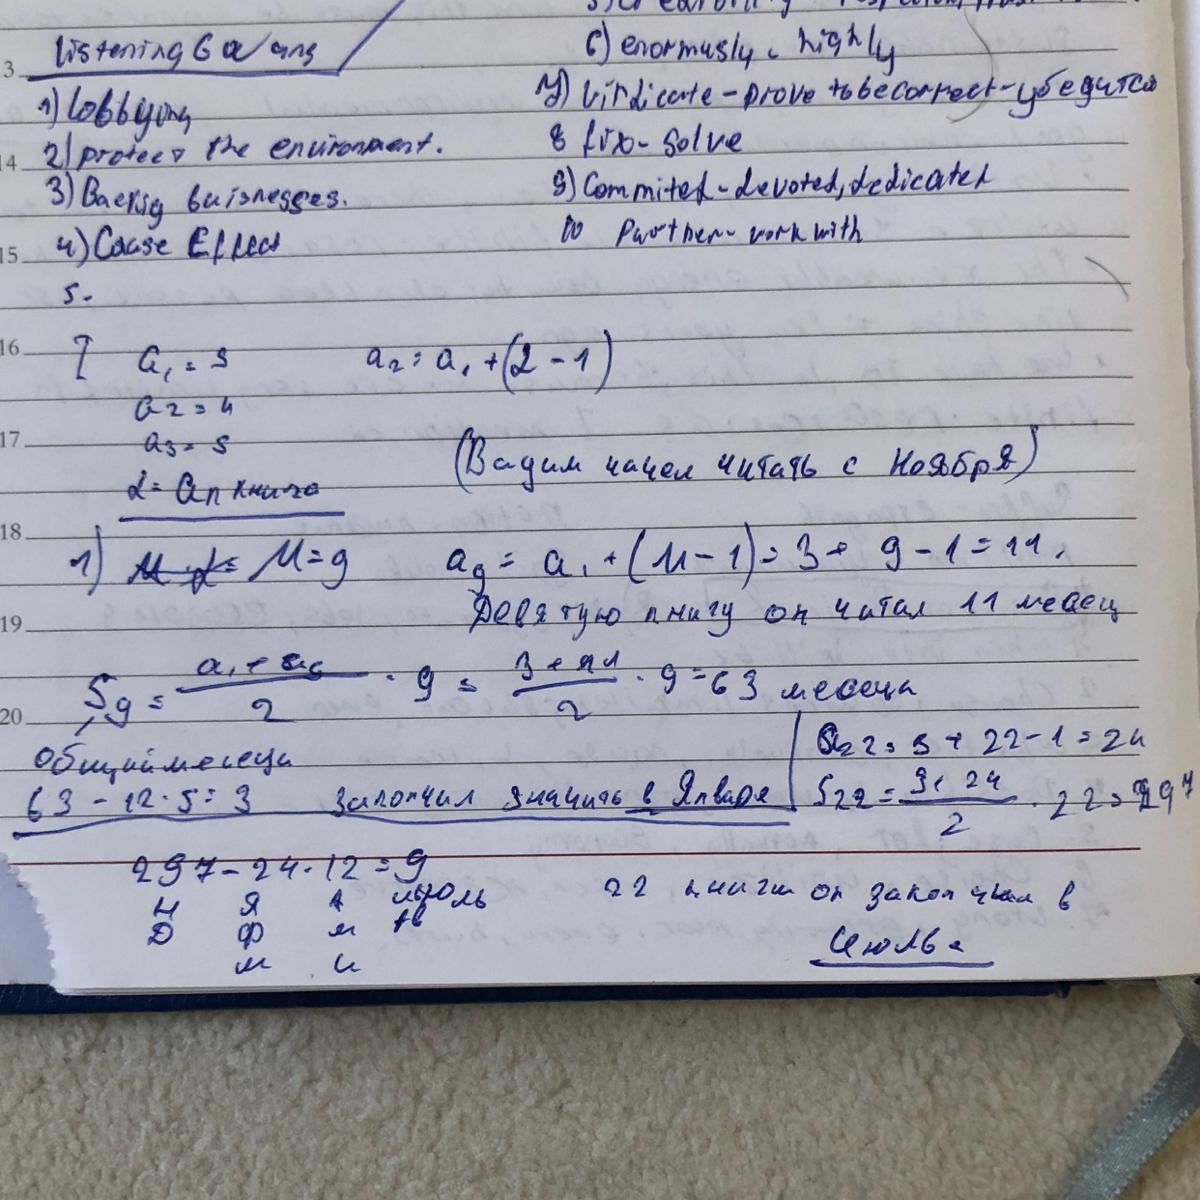 Listening 6 a ans
1) Lobbying
2) protect the environment.
3) Backing buisnesses.
4) Cause Effect
5.
6) enormously - highly
7) Vindicate - prove to be correct - убедится
8 fix - solve
9) Commited - devoted, dedicated
10 Partner - work with
a₁ = 3 a₂ = a₁ + (2 - 1)
a₂ = 4
a₃ = 5
(Вадим начел читать с Ноября)
L = aₙ книга
1) n = 9 a₉ = a₁ + (n - 1) = 3 + 9 - 1 = 11.
Девятую книгу он читал 11 месец
S₉ = a₁ + a₉ / 2 · 9 = 3 + 11 / 2 · 9 = 63 месеца
Общий месеца
63 - 12·5 = 3 Закончил значить в Январе
a₂₂ = 3 + 22 - 1 = 24
S₂₂ = 3 + 24 / 2 · 22 = 297
297 - 24·12 = 9
Н Я А июль
Д Ф М ав
М И
22 книги он закончил в
Июль.